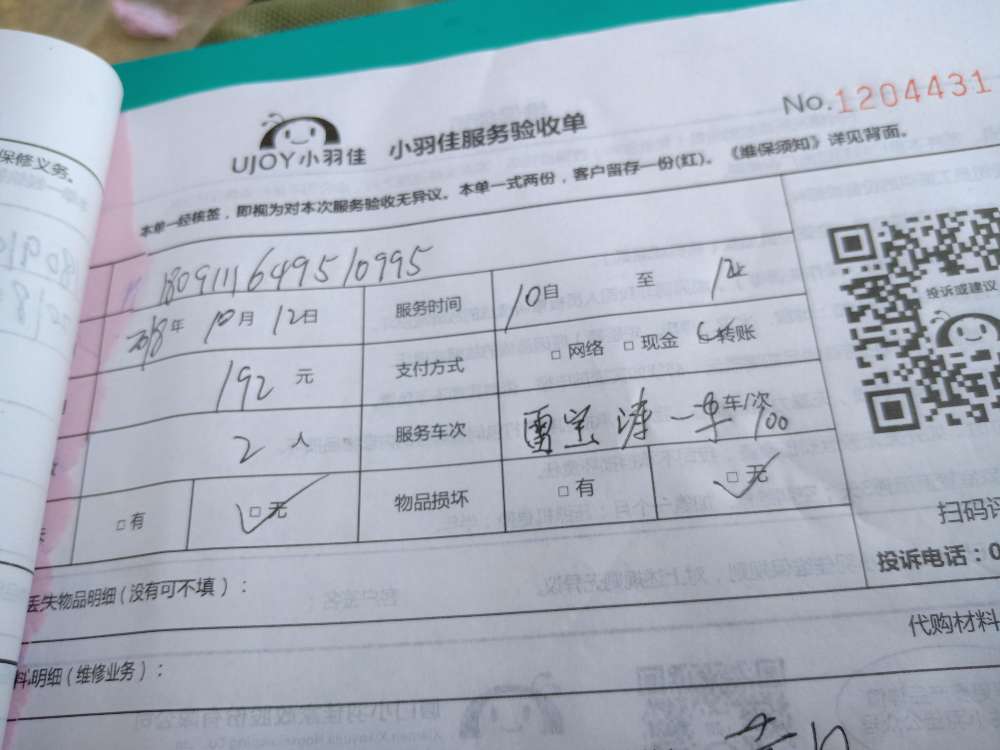 No.1204431
UJOY小羽佳 小羽佳服务验收单
本单一经核签，即视为对本次服务验收无异议。本单一式两份，客户留存一份(红)。《维保须知》详见背面。
保修义务。
1809111649510995
2018年 10月 12日 服务时间 10自 至 12止
192 元 支付方式 □ 网络 □ 现金 ☑ 转账
投诉或建议
2 人 服务车次 一车 车/次 100
□ 有 ☑ 无 物品损坏 □ 有 ☑ 无
扫码评
投诉电话：0
丢失物品明细（没有可不填）：
代购材料
料明细（维修业务）：